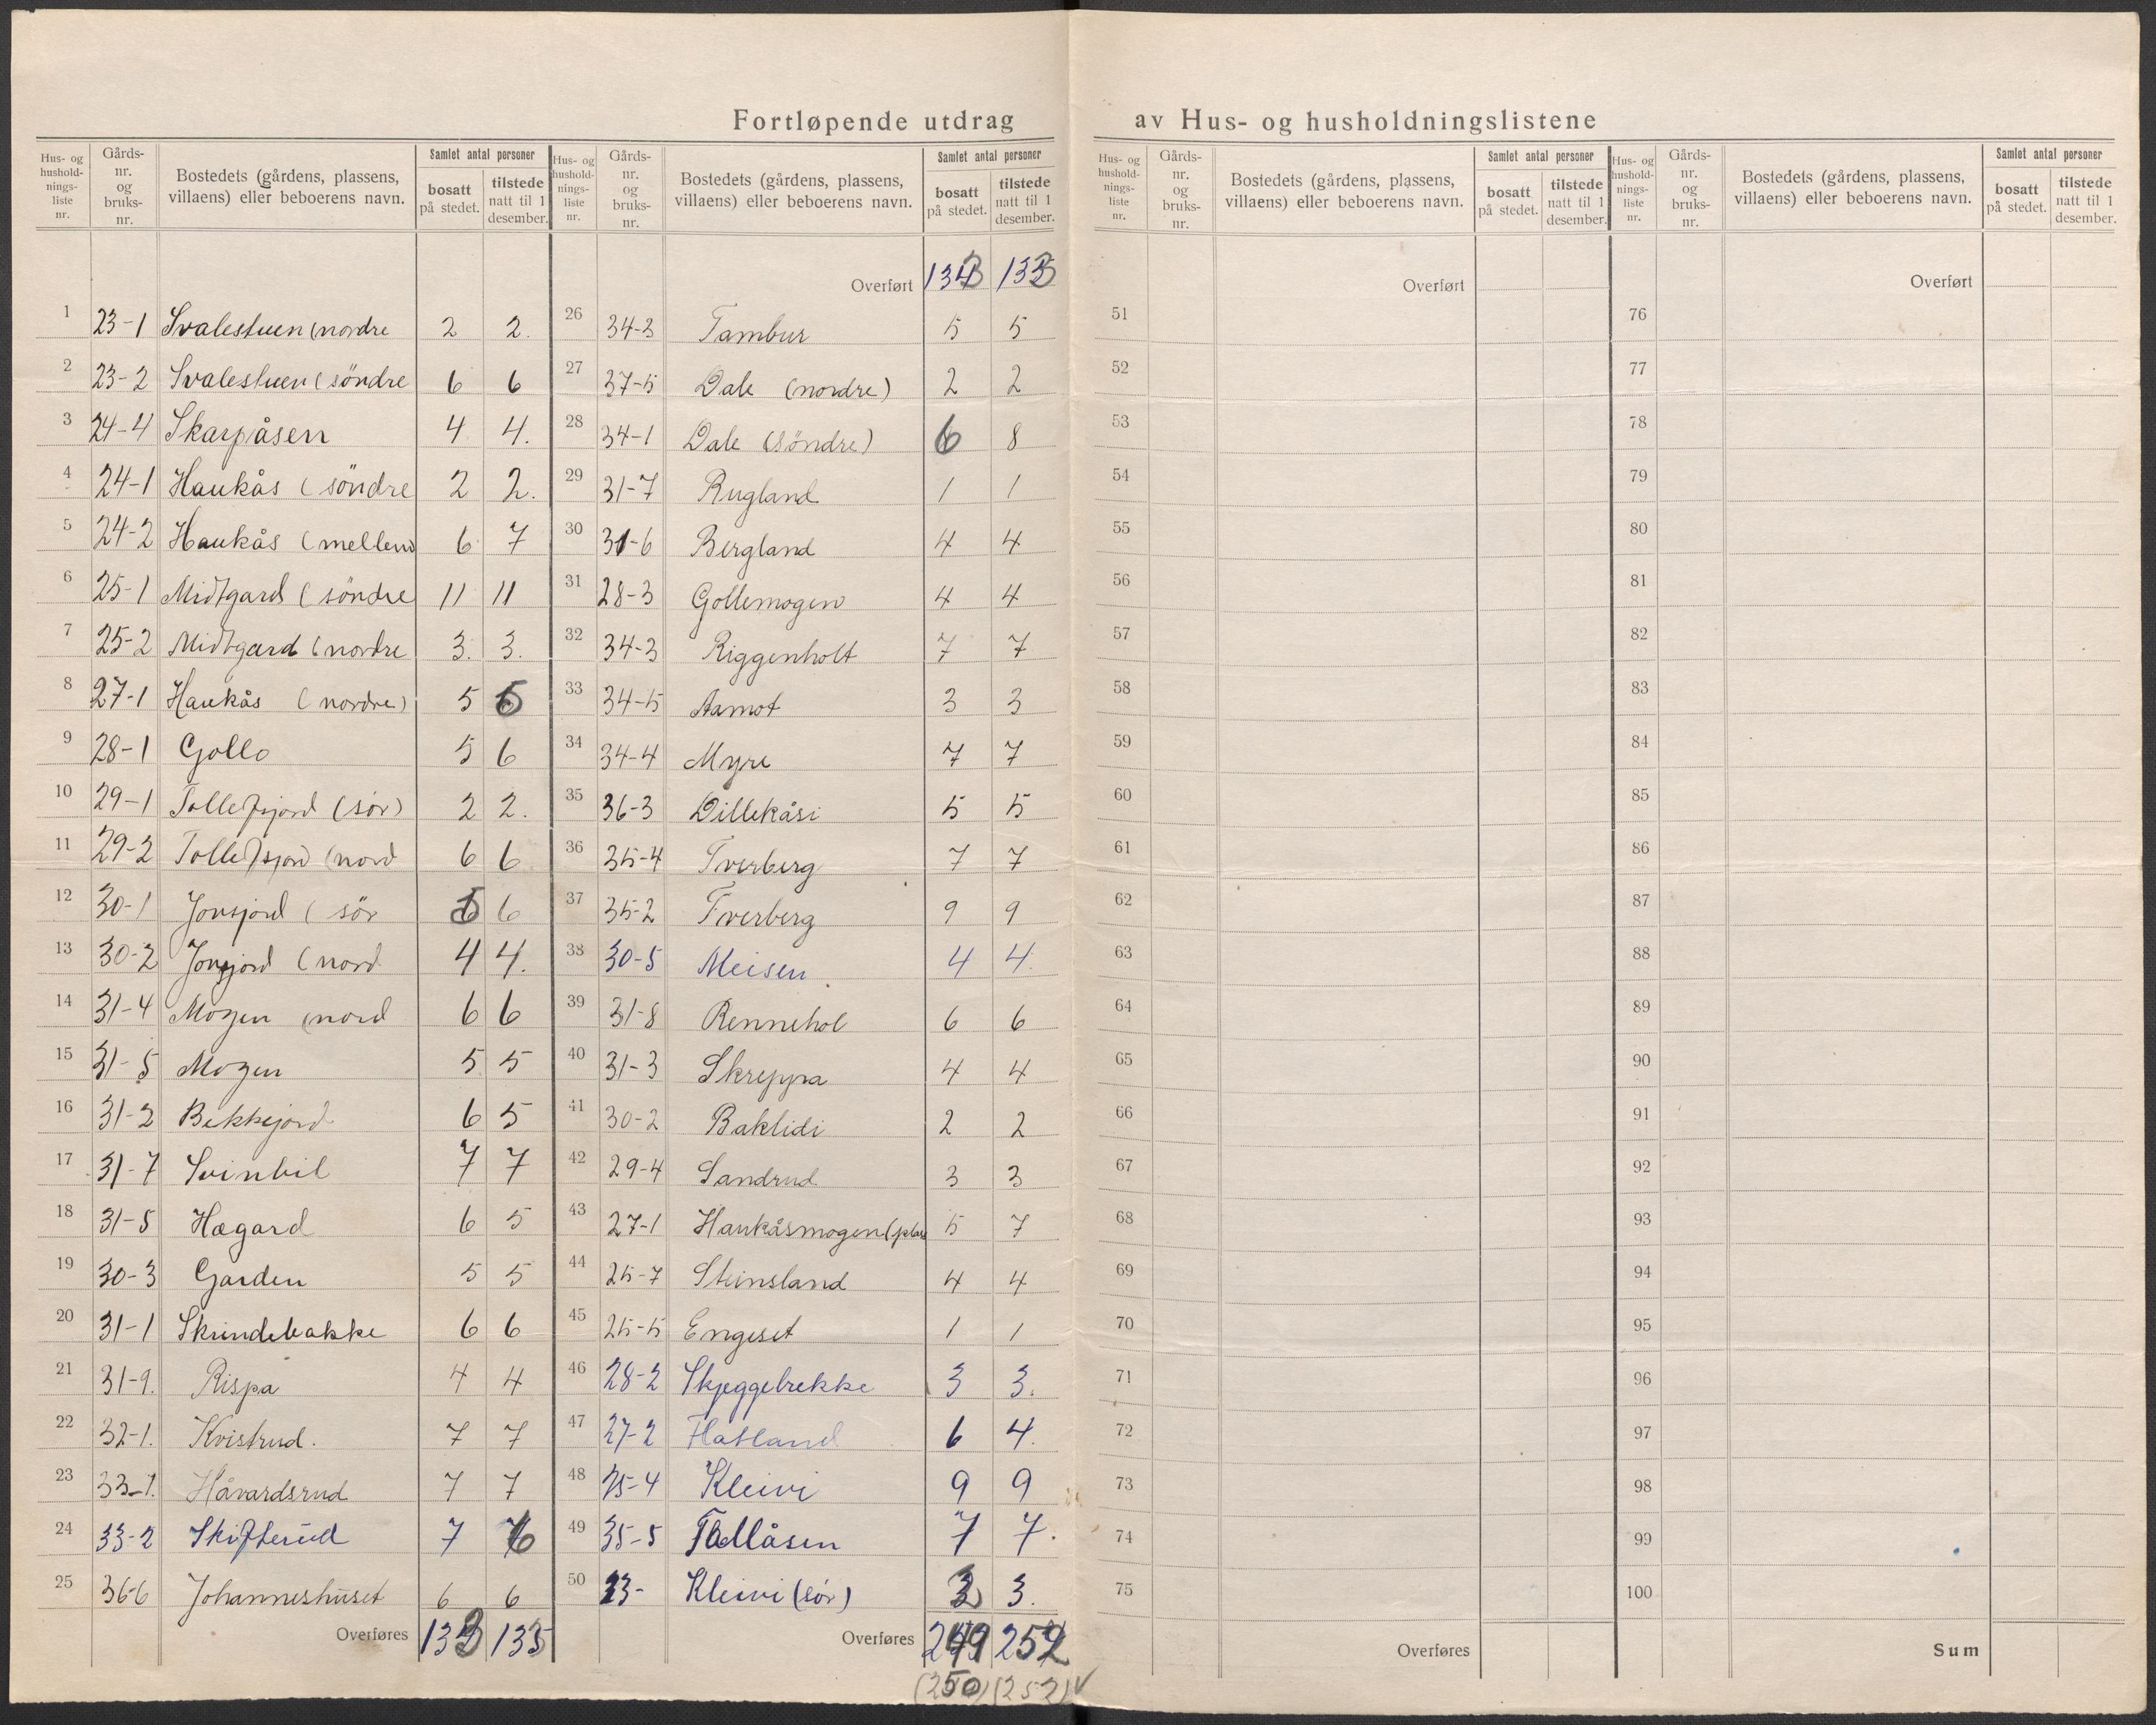 Fortløpende utdrag av Hus- og husholdningslistene
Hus- og husholdningsliste nr. | Gårds-nr. og bruks-nr. | Bostedets (gårdens, plassens, villaens) eller beboerens navn. | Samlet antal personer bosatt på stedet. | tilstede natt til 1 desember.
1 23-1 Svalestuen (nordre 2 2.
2 23-2 Svalestuen (söndre 6 6
3 24-4 Skarpåsen 4 4.
4 24-1 Haukås (söndre 2 2.
5 24-2 Haukås (mellem 6 7
6 25-1 Midtgard (söndre 11 11
7 25-2 Midtgard (nordre 3. 3.
8 27-1 Haukås (nordre) 5
9 28-1 Gollo 5 6
10 29-1 Tollefsjord (sör) 2 2.
11 29-2 Tollefsjord (nord 6 6
12 30-1 Jonsjord (sör 6
13 30-2 Jonsjord (nord 4 4.
14 31-4 Mogen (nord 6 6
15 31-5 Mogen 5 5
16 31-2 Bekkejord 6 5
17 31-7 Svinbil 7 7
18 31-5 Hægard 6 5
19 30-3 Garden 5 5
20 31-1 Skrindebakke 6 6
21 31-9. Rispa 4 4
22 32-1. Kvistrud. 7 7
23 33-1. Håvardsrud 7 7
24 33-2 Skifterud 7 6
25 36-6 Johanneshuset 6 6
Overføres 133 135
Hus- og husholdningsliste nr. | Gårds-nr. og bruks-nr. | Bostedets (gårdens, plassens, villaens) eller beboerens navn. | Samlet antal personer bosatt på stedet. | tilstede natt til 1 desember.
Overført 133 133
26 34-3 Tambur 5 5
27 37-5 Dale (nordre) 2 2
28 34-1 Dale (söndre) 6 8
29 31-7 Rugland 1 1
30 31-6 Bergland 4 4
31 28-3 Gollemogen 4 4
32 34-3 Riggenholt 7 7
33 34-5 Aamot 3 3
34 34-4 Myre 7 7
35 36-3 Dillekåsi 5 5
36 35-4 Tverberg 7 7
37 35-2 Tverberg 9 9
38 30-5 Meisen 4 4.
39 31-8 Rennehol 6 6
40 31-3 Skreppa 4 4
41 30-2 Baklidi 2 2
42 29-4 Sandrud 3 3
43 27-1 Haukåsmogen (plas 5 7
44 25-7 Steinsland 4 4
45 25-5 Engeset 1 1
46 28-2 Skjeggebrekke 3 3.
47 27-2 Flatland 6 4.
48 25-4 Kleivi 9 9
49 35-5 Tållåsen 7 7.
50 23- Kleivi (sör) 3 3.
Overføres 249 252
(250) (252) ✓
Hus- og husholdningsliste nr. | Gårds-nr. og bruks-nr. | Bostedets (gårdens, plassens, villaens) eller beboerens navn. | Samlet antal personer bosatt på stedet. | tilstede natt til 1 desember.
Overført
51
52
53
54
55
56
57
58
59
60
61
62
63
64
65
66
67
68
69
70
71
72
73
74
75
Overføres
Hus- og husholdningsliste nr. | Gårds-nr. og bruks-nr. | Bostedets (gårdens, plassens, villaens) eller beboerens navn. | Samlet antal personer bosatt på stedet. | tilstede natt til 1 desember.
Overført
76
77
78
79
80
81
82
83
84
85
86
87
88
89
90
91
92
93
94
95
96
97
98
99
100
Sum